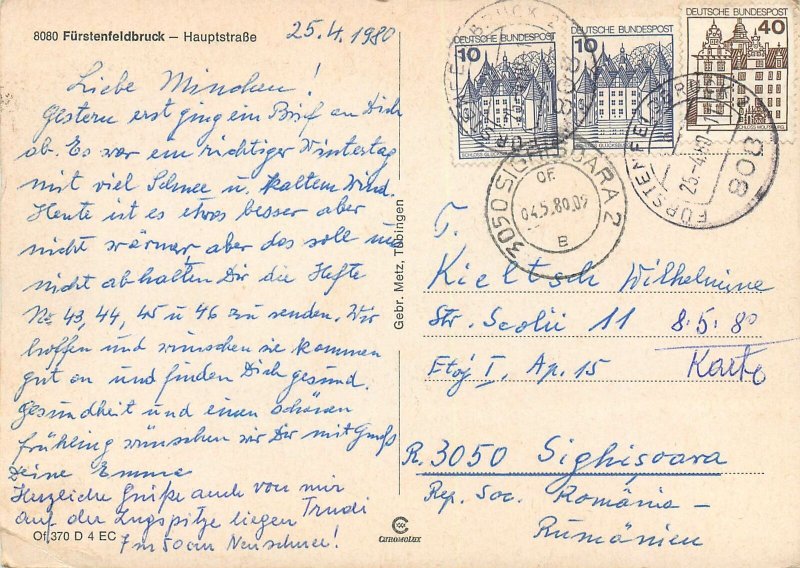 8080 Fürstenfeldbruck – Hauptstraße
25.4.1980
Liebe Minchen!
Gestern erst ging ein Brief an Dich
ab. Es war ein richtiger Wintertag
mit viel Schnee u. kaltem Wind.
Heute ist es etwas besser aber
nicht wärmer, aber das soll uns
nicht abhalten Dir die Hefte
Nr 43, 44, 45 u 46 zu senden. Wir
hoffen und wünschen sie kommen
gut an und finden Dich gesund.
Gesundheit und einen schönen
Frühling wünschen wir Dir mit Gruß
Deine Emma
Herzliche Grüße auch von mir
Trudi
auf der Zugspitze liegen
7m 50cm Neuschnee!
Of 370 D 4 EC
Gebr. Metz, Tübingen
CHROMOLUX
DEUTSCHE BUNDESPOST
10
SCHLOSS GLÜCKSBURG
DEUTSCHE BUNDESPOST
10
SCHLOSS GLÜCKSBURG
DEUTSCHE BUNDESPOST
40
SCHLOSS WOLFSBURG
808
FÜRSTENFELDBRUCK
25.-4.80
808
3050 SIGHISOARA 2
OF
04.5.80.09
B
T.
Kieltsch Wilhelmine
Str. Scolii 11
8.5.80
Etaj I, Ap. 15
Karte
R. 3050 Sighişoara
Rep. Soc. România –
Rumänien